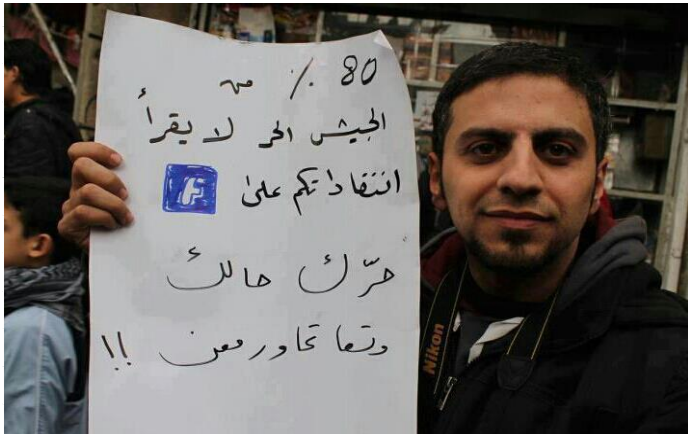 80 ٪ من
الجيش الحر لا يقرأ
انتقاداتكم على F
حرّك حالك
وتعا تحاور معن !!
Nikon